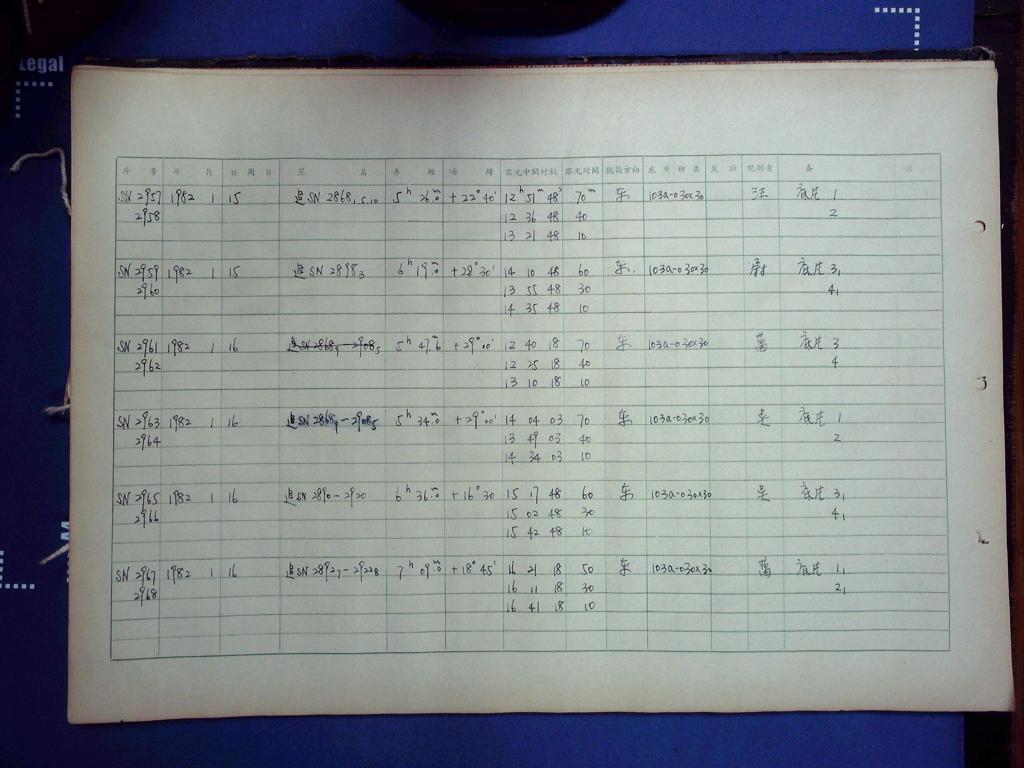 Legal
序 号 年 月 日 周 日 星 名 赤 經 赤 緯 露光中間时刻 露光时間 鏡筒方向 底 片 种 类 观測者 备 註
SN 2957 1982 1 15 追SN 2868, 5.10 5h 26m.0 +22° 40' 12h 51m 48s 70m 东 103a-0 30x30 汪 底片 1
2958 12 36 48 40 2
13 21 48 10
SN 2959 1982 1 15 追SN 2898₃ 6h 19m.0 +28° 30' 14 10 48 60 东 103a-0 30x30 底片 3,
2960 13 55 48 30 4,
14 35 48 10
SN 2961 1982 1 16 追SN2868₉-2908₅ 5h 47m.6 +29° 00' 12 40 18 70 东 103a-0 30x30 萬 底片 3
2962 12 25 18 40 4
13 10 18 10
SN 2963 1982 1 16 追SN 2868₉-2908₅ 5h 34m.0 +29° 00' 14 04 03 70 东 103a-0 30x30 吴 底片 1
2964 13 49 03 40 2
14 34 03 10
SN 2965 1982 1 16 追SN 2890-2920 6h 36m.0 +16° 30 15 17 48 60 东 103a-0 30x30 吴 底片 3,
2966 15 02 48 30 4,
15 42 48 10
SN 2967 1982 1 16 追SN 2892₇-2922₈ 7h 09m.0 +18° 45' 16 21 18 50 东 103a-0 30x30 萬 底片 1,
2968 16 11 18 30 2,
16 41 18 10